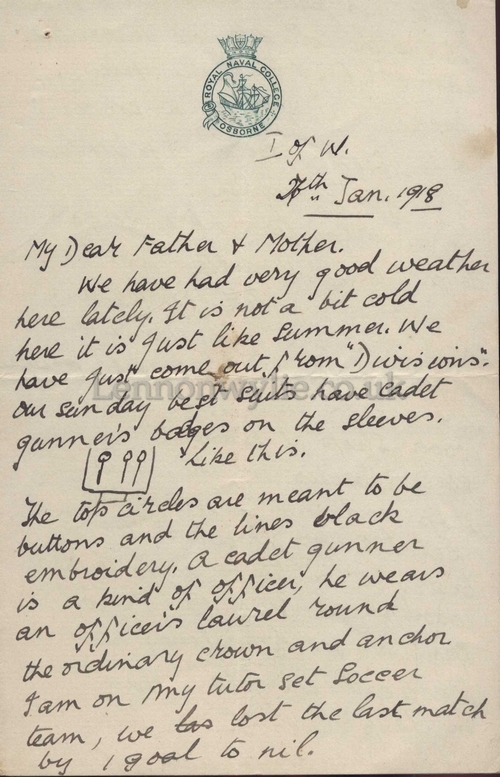 ROYAL NAVAL COLLEGE
OSBORNE
I of W.
Jan. 1918
My Dear Father & Mother.
We have had very good weather
here lately. It is not a bit cold
here it is just like summer. We
have just come out from "Divisions".
our sunday best suits have cadet
gunner's badges on the sleeves.
like this.
The top circles are meant to be
buttons and the lines black
embroidery. A cadet gunner
is a kind of officer, he wears
an officer's laurel round
the ordinary crown and anchor
I am on my tutor set Soccer
team, we lost the last match
by 1 goal to nil.
Lennonwylie.co.uk